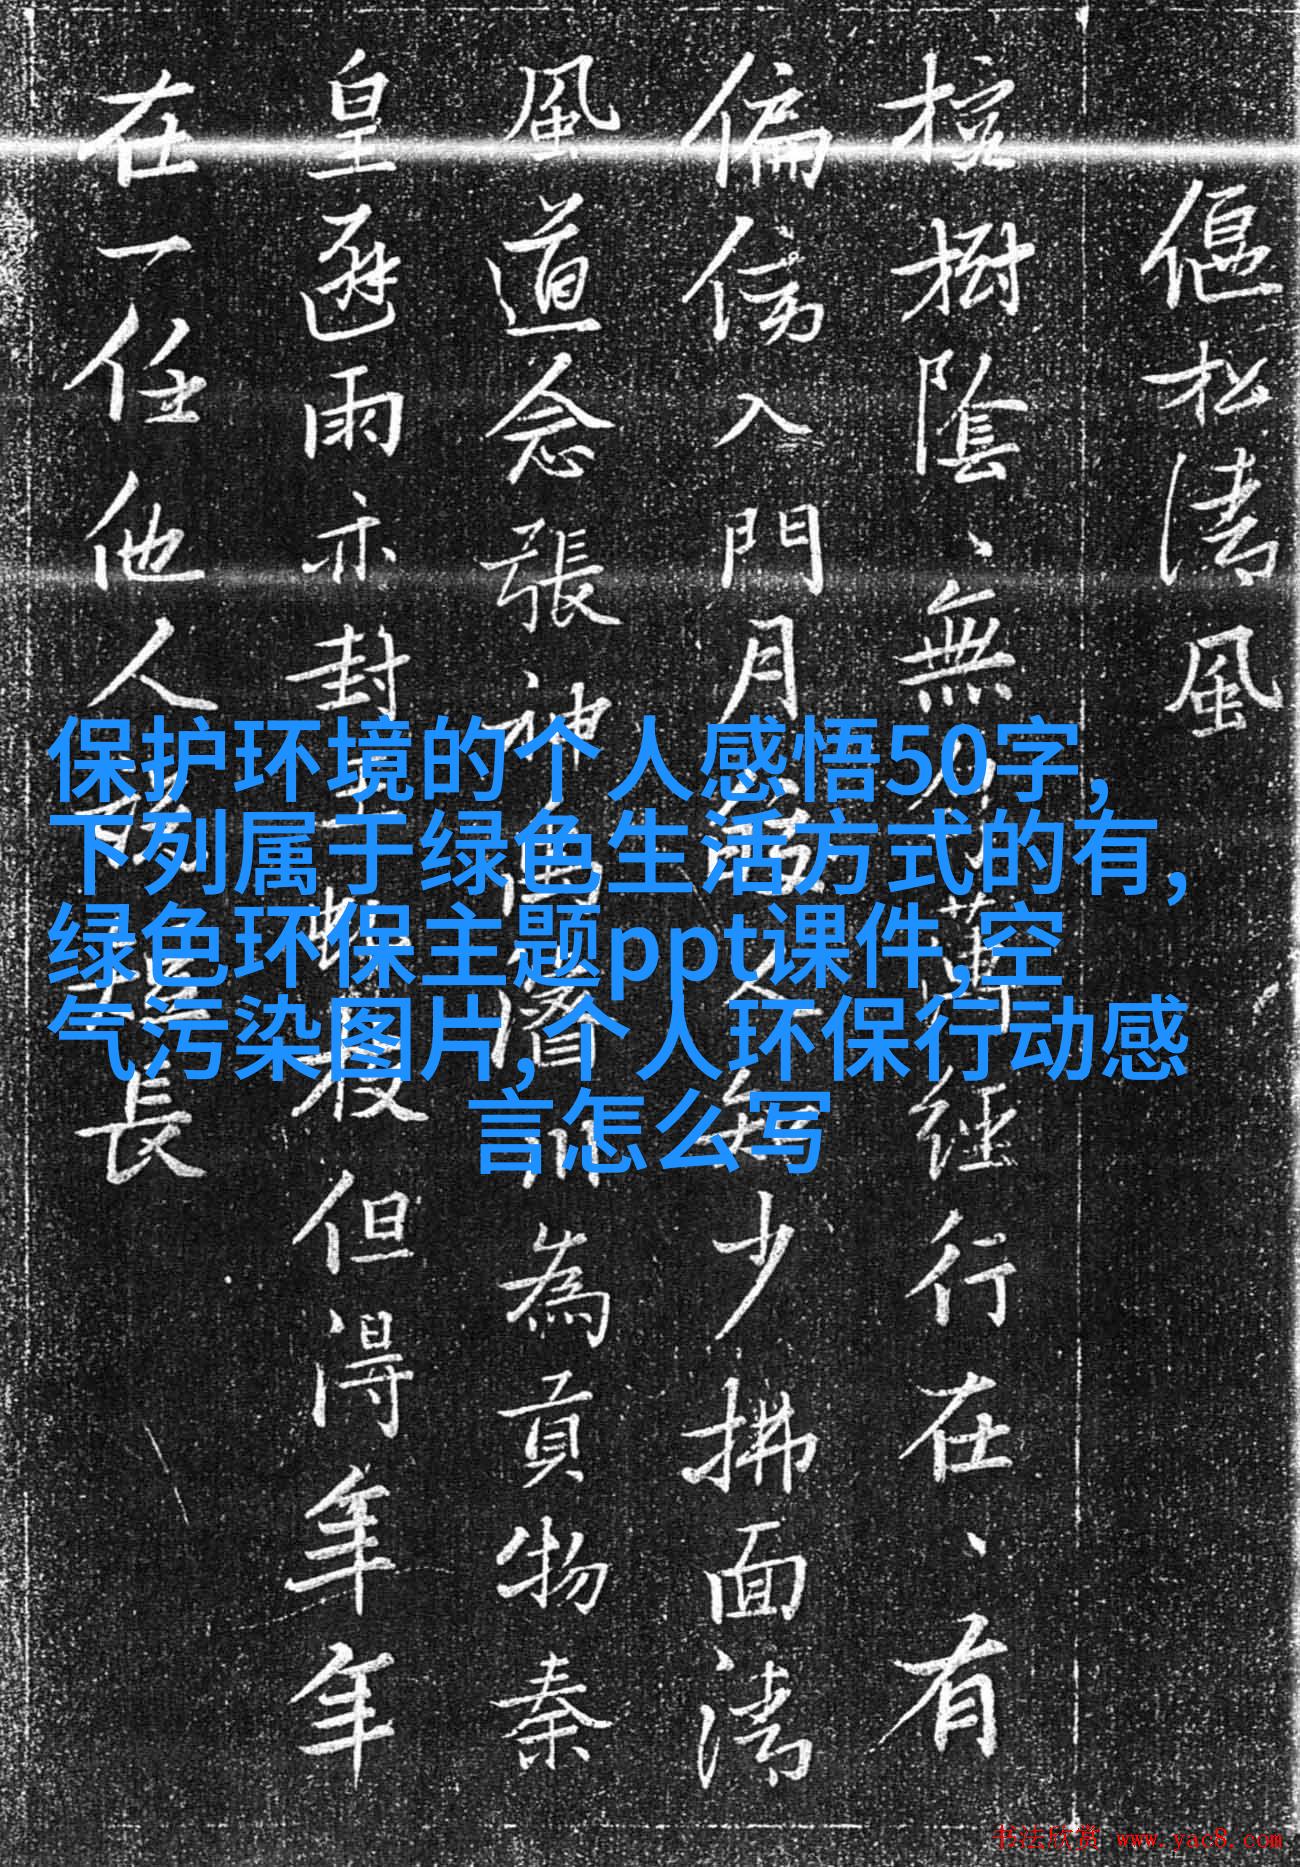 偃松清風
樹陰、無 經行在、有
偏傍入門月 少拂面清
風道念張神 為貢物秦
皇避雨亦封 但得年年
在一任他人 長
保护环境的个人感悟50字,
下列属于绿色生活方式的有,
绿色环保主题ppt课件,空
气污染图片,个人环保行动感
言怎么写
书法欣赏 www.yac8.com